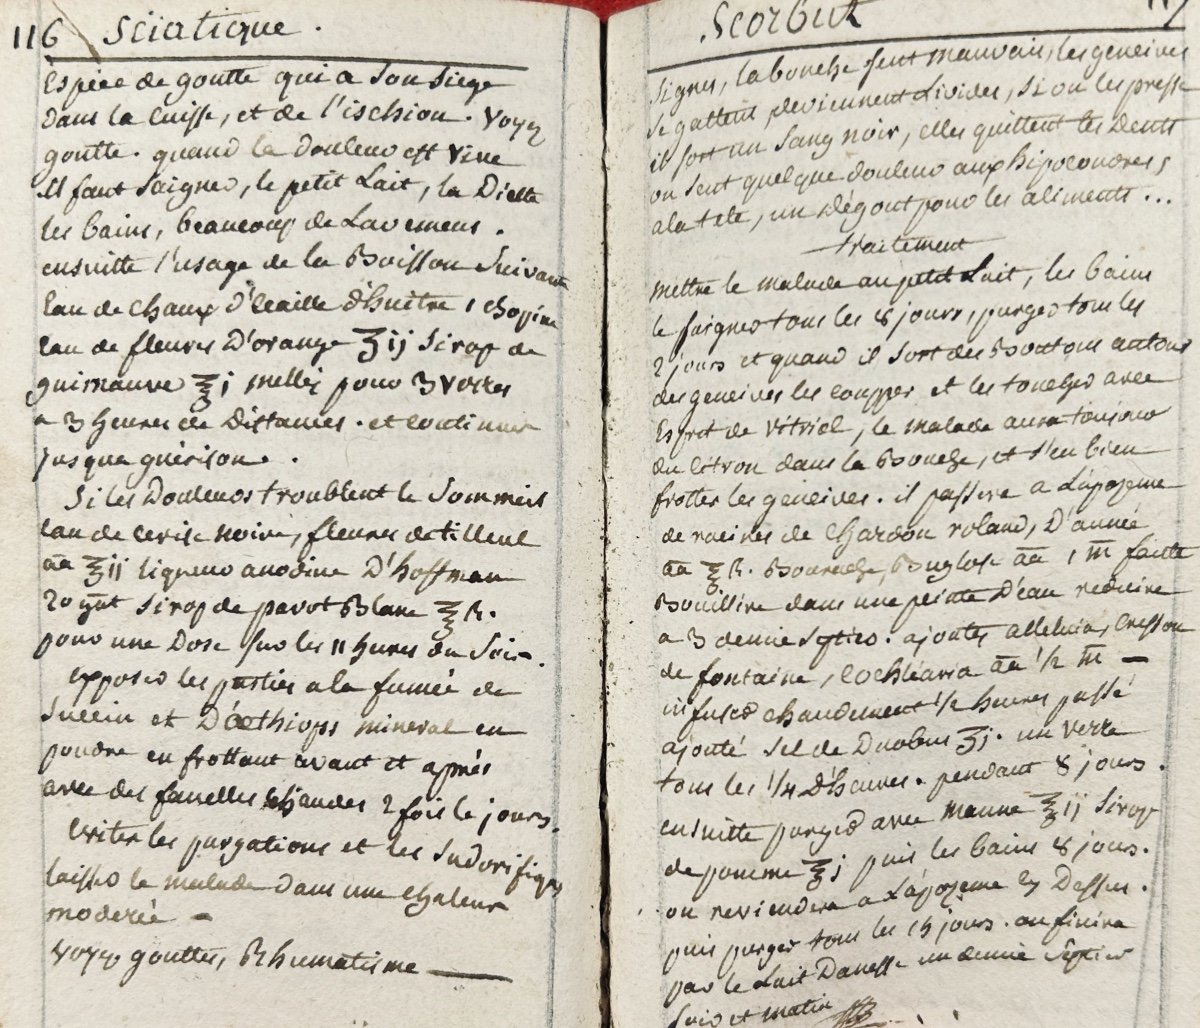 116 Sciatique.
Espece de goutte qui a son Siege
dans la cuisse, et de l'ischion. Voyez
goutte. quand la douleur est vive
il faut saigner, le petit Lait, la Diette
les bains, beaucoup de Lavemens.
ensuitte l'usage de la Boisson Suivante
Eau de chaux d'Ecaille d'huitre 1 chopine
Eau de fleurs D'orange ʒij Sirop de
guimauve ℥j mellez pour 3 Verres
a 3 heures de Distances. et continuer
jusqua guérison.
Si les Douleurs troublent le Sommeil
Eau de cerise noire, fleures de tilleul
āā ℥ij liqueur anodine D'hoffman
20 gut Sirop de pavot Blanc ℥ß.
pour une Dose sur les 11 heures du Soir.
Exposer les parties a la fumée de
Succin et D'œthiops mineral en
poudre en frottant avant et aprés
avec des fanelles chaudes 2 fois le jours.
Eviter les purgations et les Sudorifiques
laisser le malade dans une chaleur
moderée
Voyez gouttes, Rhumatisme
Scorbut 117
Signes, la bouche sent mauvais, les gencives
se gattent, deviennent Livides, si on les presse
il sort un Sang noir, elles quittent les Dents
on sent quelque douleur aux hipocondres,
a la tete, un dégout pour les aliments...
traitement
mettre le malade au petit Lait, les bains
le saigner tous les 8 jours, purger tous les
2 jours et quand il sort des Boutons autour
des gencives les coupper et les toucher avec
Esprit de Vitriol, le malade aura toujour
du citron dans la Bouche, et s'en bien
frotter les gencives. il passera a L'apozeme
de racines de chardon roland, D'aunée
āā ℥ß. Bourache, Buglose āā 1 m̄ faite
Bouillire dans une peinte D'eau reduire
a 3 demie Septier. ajoutés alleluia, Cresson
de fontaine, Cochléaria āā 1/2 m̄
infuser chaudement 1/2 heures passé
ajouté Sel de Duobus ʒj. un verre
tous les 1/4 d'heures. pendant 8 jours.
ensuitte purger avec manne ℥ij Sirop
de pomme ℥j puis les bains 8 jours.
on reviendra a L'apozeme cy Dessus.
puis purger tous les 15 jours. on finira
par le Lait Danesse un demie Septier
Soir et matin